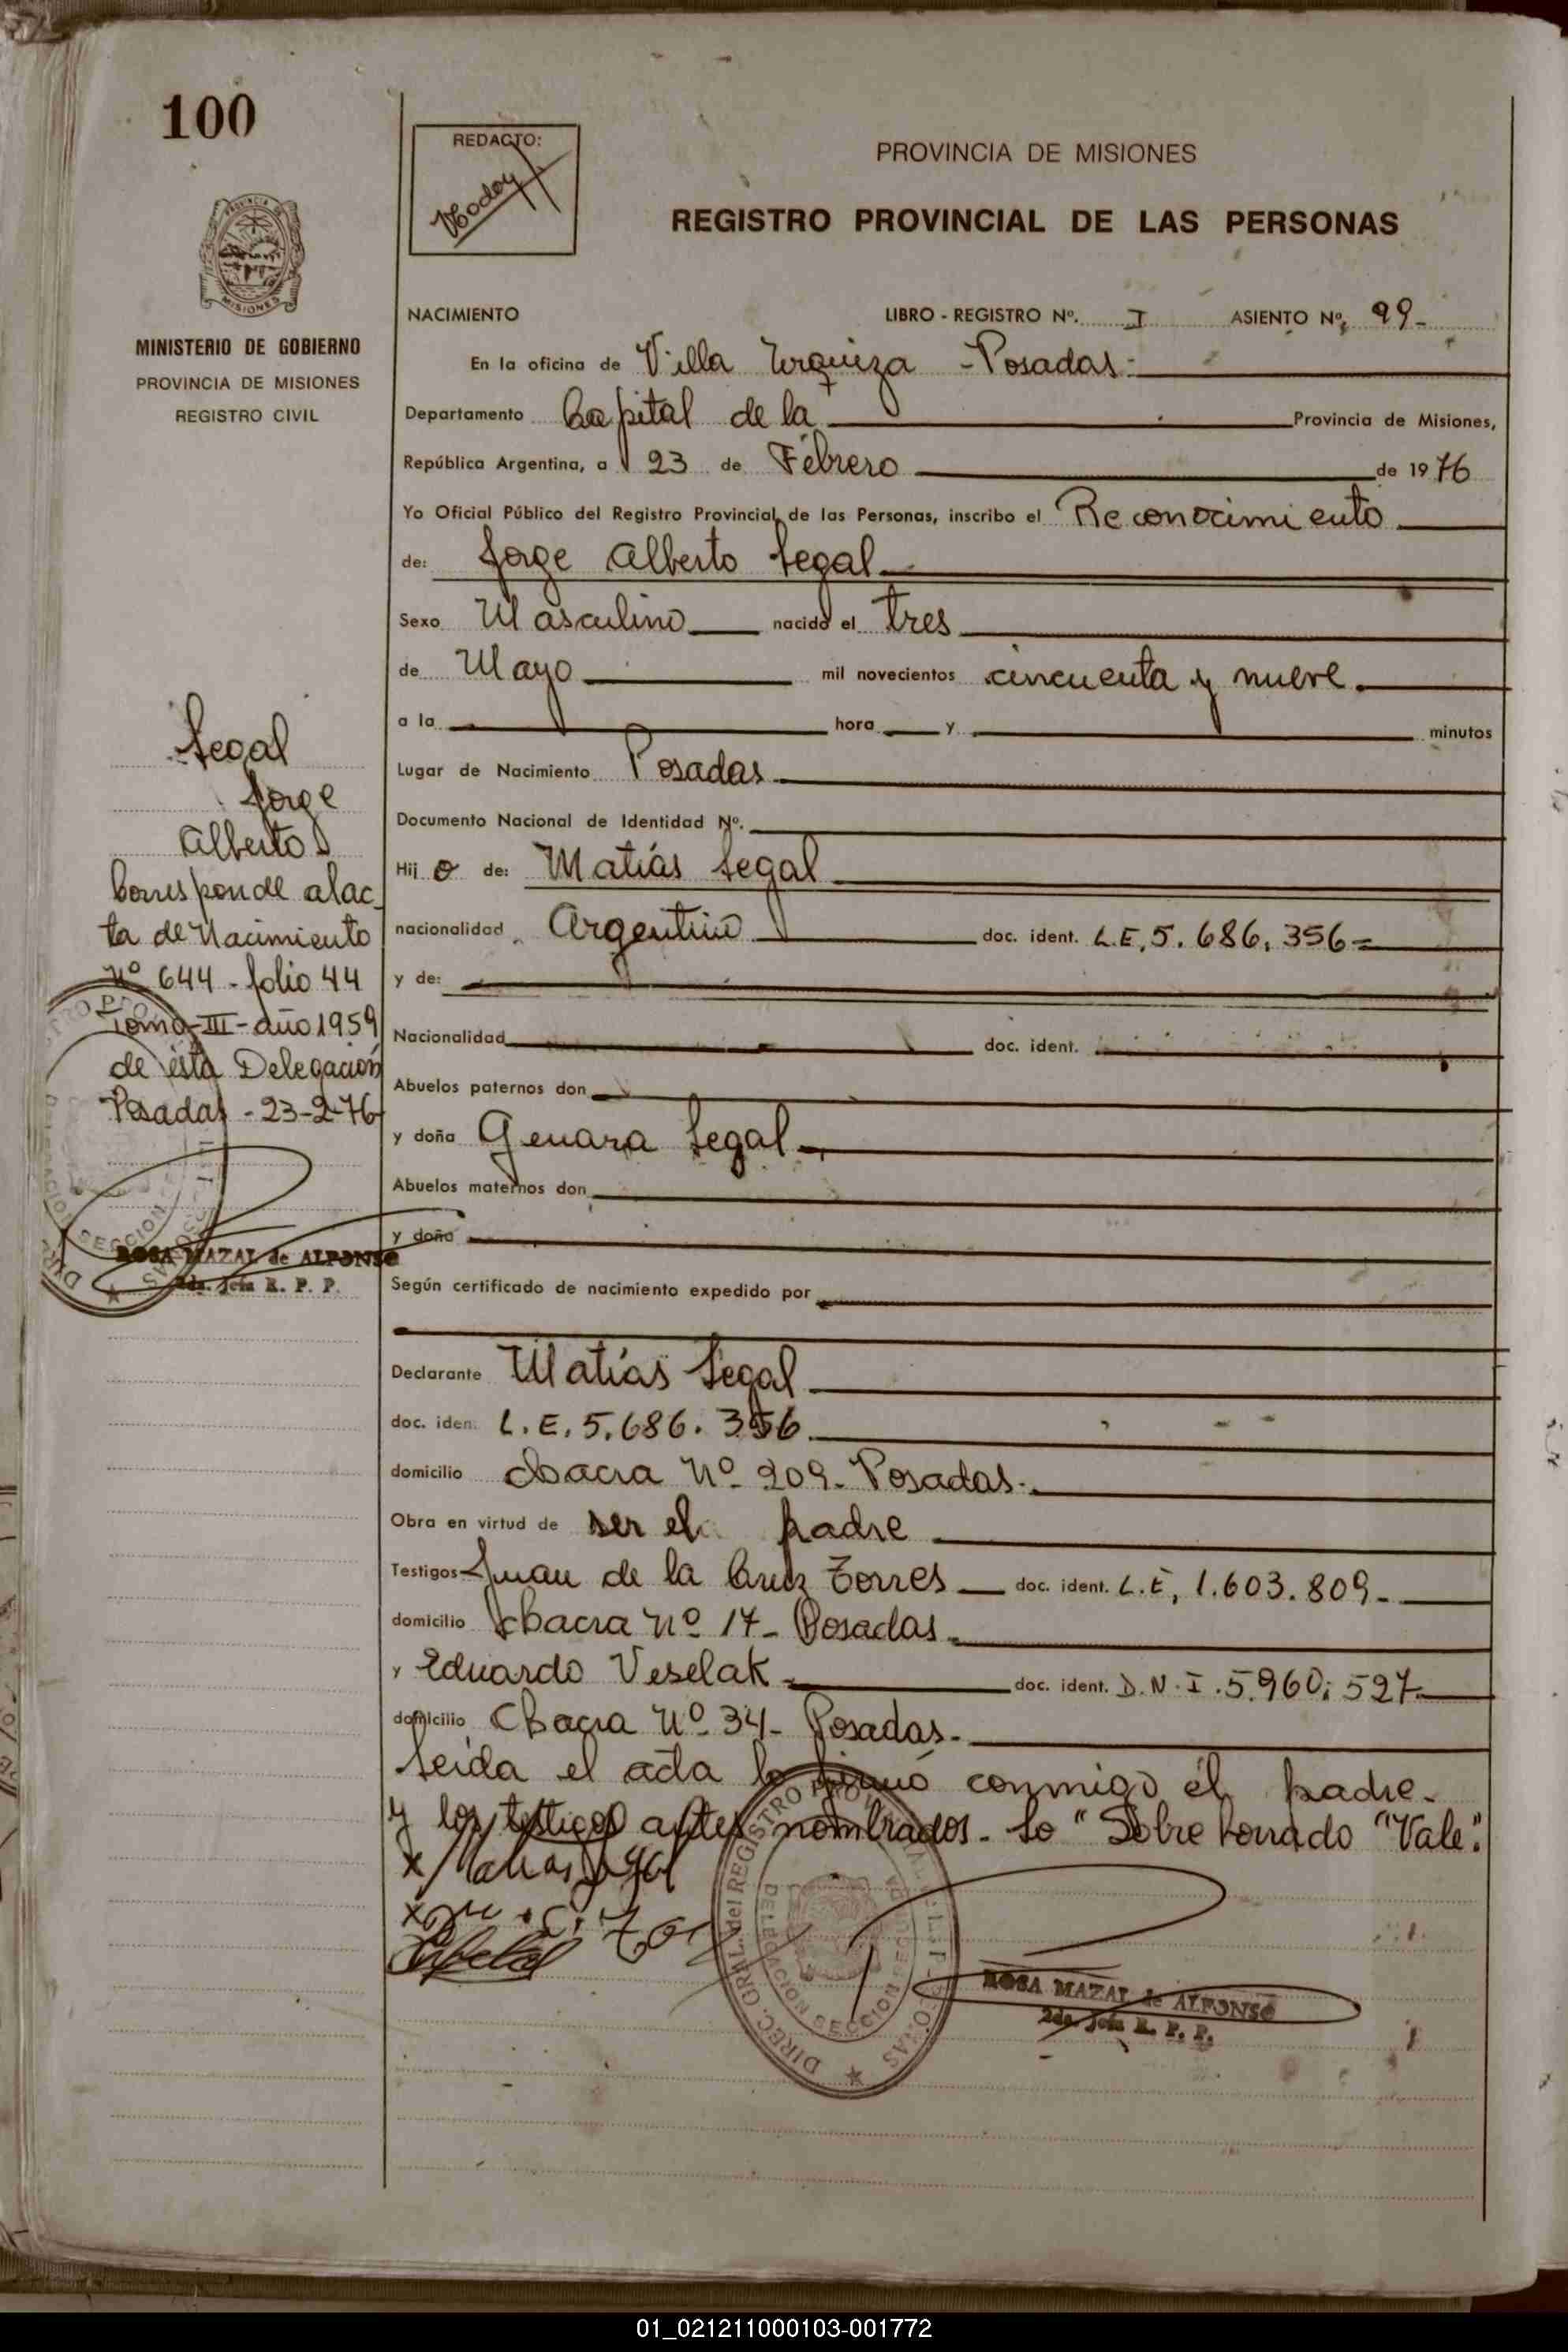 100
REDACTO:
PROVINCIA DE MISIONES
REGISTRO PROVINCIAL DE LAS PERSONAS
MINISTERIO DE GOBIERNO
PROVINCIA DE MISIONES
REGISTRO CIVIL
NACIMIENTO LIBRO - REGISTRO Nº. I ASIENTO Nº, 99-
En la oficina de Villa Urquiza - Posadas -
Departamento Capital de la Provincia de Misiones,
República Argentina, a 23 de Febrero de 1976
Yo Oficial Público del Registro Provincial de las Personas, inscribo el Reconocimiento
de: Jorge Alberto Segal
Sexo Masculino nacido el tres
de Mayo mil novecientos cincuenta y nueve.
a la hora y minutos
Lugar de Nacimiento Posadas
Documento Nacional de Identidad Nº.
Hij o de: Matías Segal
nacionalidad Argentino doc. ident. L.E, 5. 686, 356=
y de:
Nacionalidad doc. ident.
Abuelos paternos don
y doña Genara Segal
Abuelos maternos don
y doña
Según certificado de nacimiento expedido por
Declarante Matías Segal
doc. iden. L. E. 5. 686. 356
domicilio Chacra Nº 209- Posadas-
Obra en virtud de ser el padre
Testigos Juan de la Cruz Torres doc. ident. L.E, 1.603.809-
domicilio Chacra Nº 17- Posadas-
y Eduardo Veselak doc. ident. D.N.I. 5.960.527
domicilio Chacra Nº 34- Posadas-
Leida el acta lo firmó conmigo el padre-
y los testigos antes nombrados- Lo "Sobre borrado "Vale".
x Matias Segal
ROSA MAZAL de ALFONSO
2da. Jefa R. P. P.
Segal
Jorge
Alberto
Corresponde al ac-
ta de Nacimiento
Nº 644 - folio 44
Tomo-III-año 1959
de ésta Delegación
Posadas - 23-2-76
ROSA MAZAL de ALFONSO
2da. Jefa R. P. P.
01_021211000103-001772